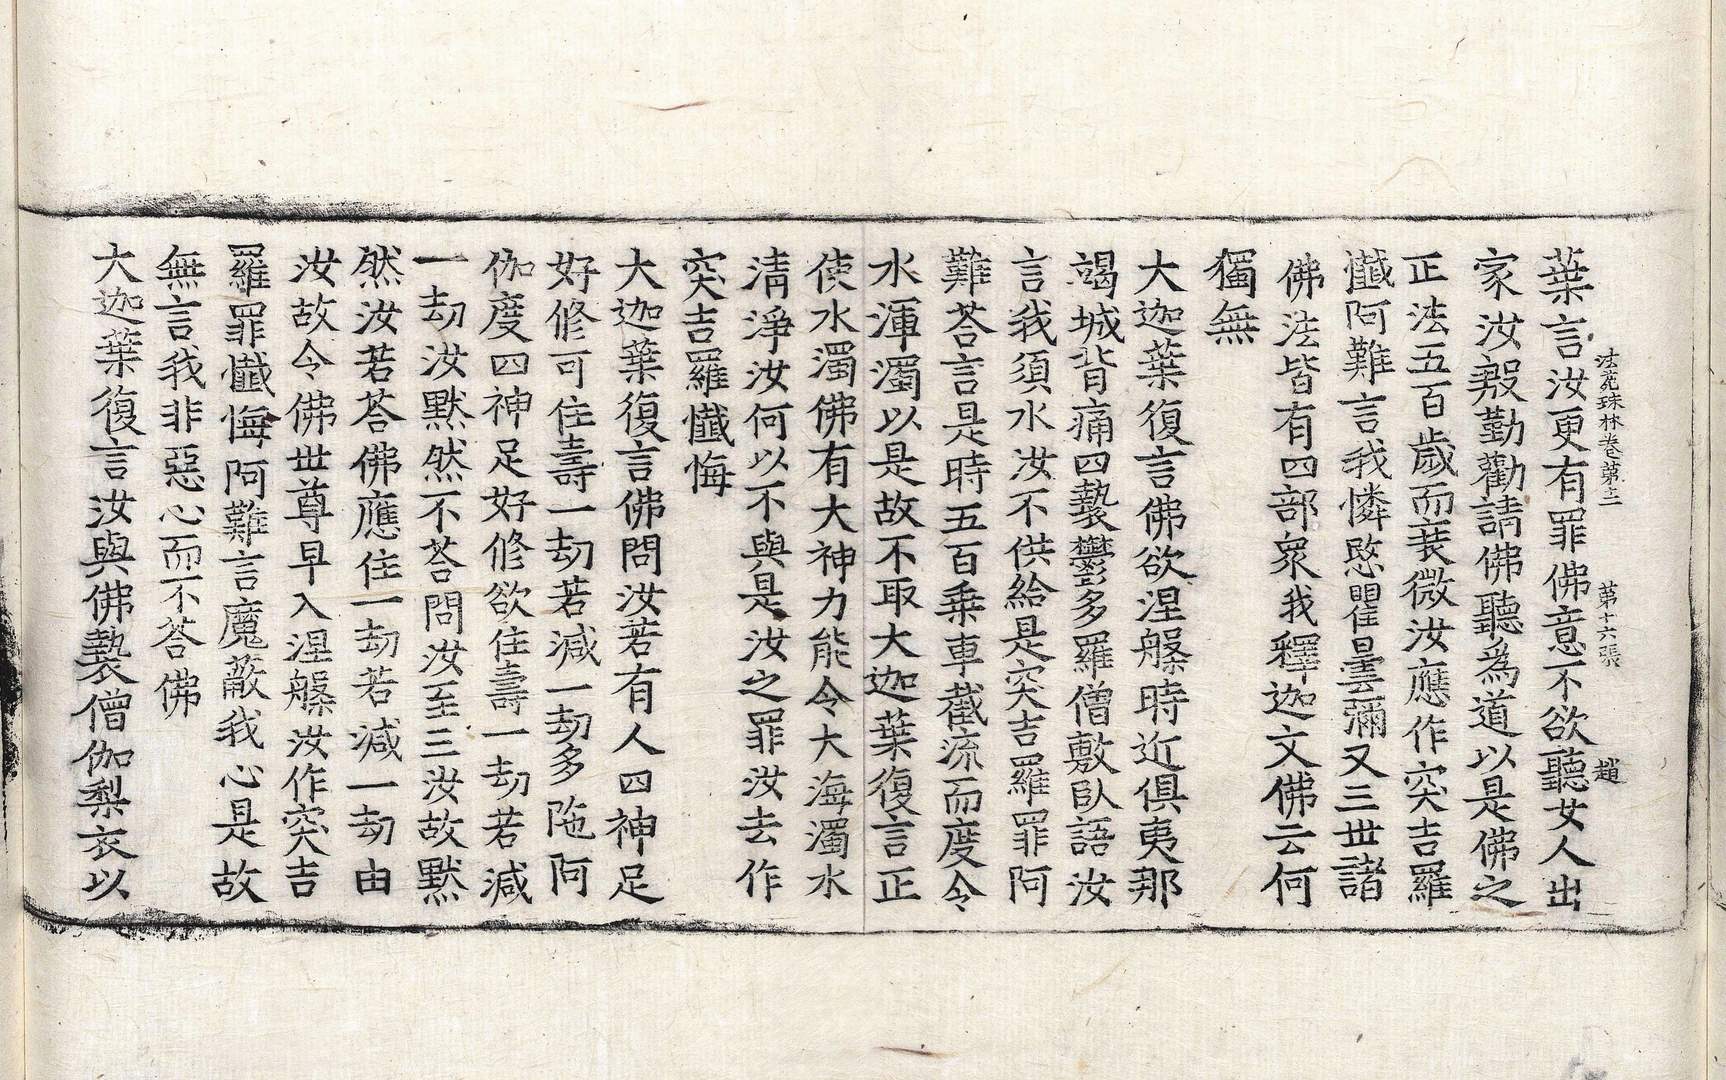 法苑珠林卷第十二 第十六張 趙
葉言汝更有罪佛意不欲聽女人出
家汝慇勤勸請佛聽為道以是佛之
正法五百歲而衰微汝應作突吉羅
懺阿難言我憐愍瞿曇彌又三世諸
佛法皆有四部衆我釋迦文佛云何
獨無
大迦葉復言佛欲涅槃時近俱夷那
竭城背痛四褺欝多羅僧敷臥語汝
言我須水汝不供給是突吉羅罪阿
難荅言是時五百乗車截流而度令
水渾濁以是故不取大迦葉復言正
使水濁佛有大神力能令大海濁水
清淨汝何以不與是汝之罪汝去作
突吉羅懺悔
大迦葉復言佛問汝若有人四神足
好修可住壽一劫若減一劫多陁阿
伽度四神足好修欲住壽一劫若減
一劫汝默然不荅問汝至三汝故默
然汝若荅佛應住一劫若減一劫由
汝故令佛世尊早入涅槃汝作突吉
羅罪懺悔阿難言魔蔽我心是故
無言我非惡心而不荅佛
大迦葉復言汝與佛褺僧伽梨衣以